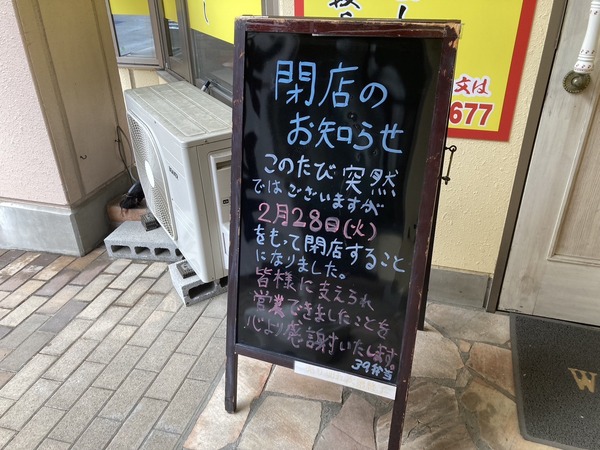 閉店の
お知らせ
このたび突然
ではございますが
2月28日(火)
をもって閉店すること
になりました。
皆様に支えられ
営業できましたことを
心より感謝いたします。
39弁当
文は
677
W